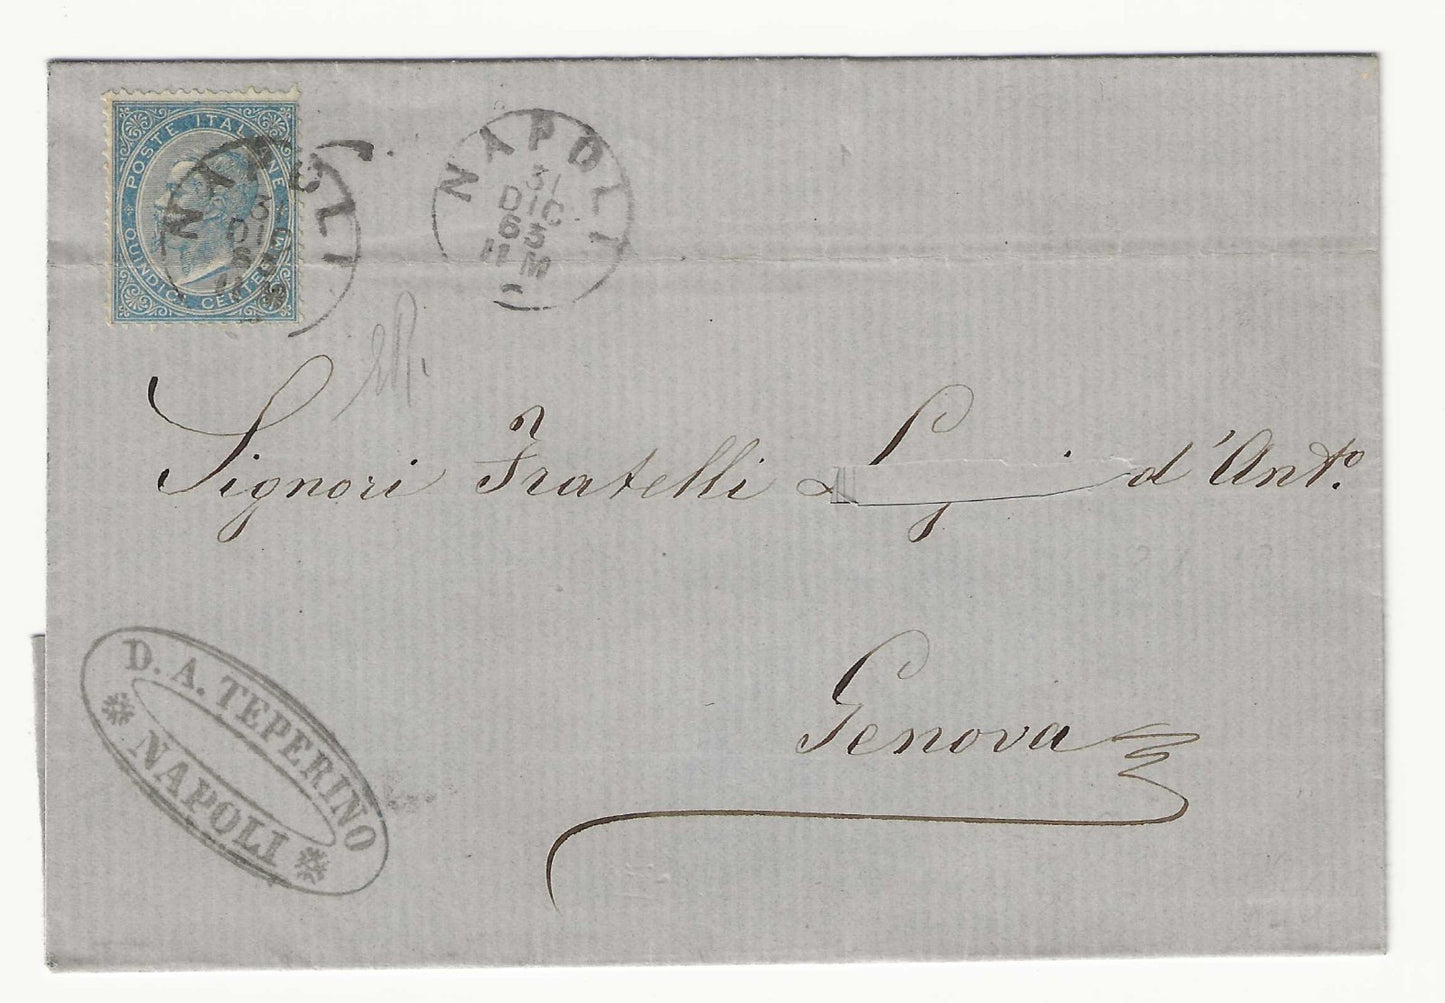 POSTE ITALIANE
QUINDICI CENTESIMI
NAPOLI
31
DIC
63
NAPOLI
31
DIC
63
11 M
Signori Fratelli d'Antº.
Genova
D. A. TEPERINO
NAPOLI